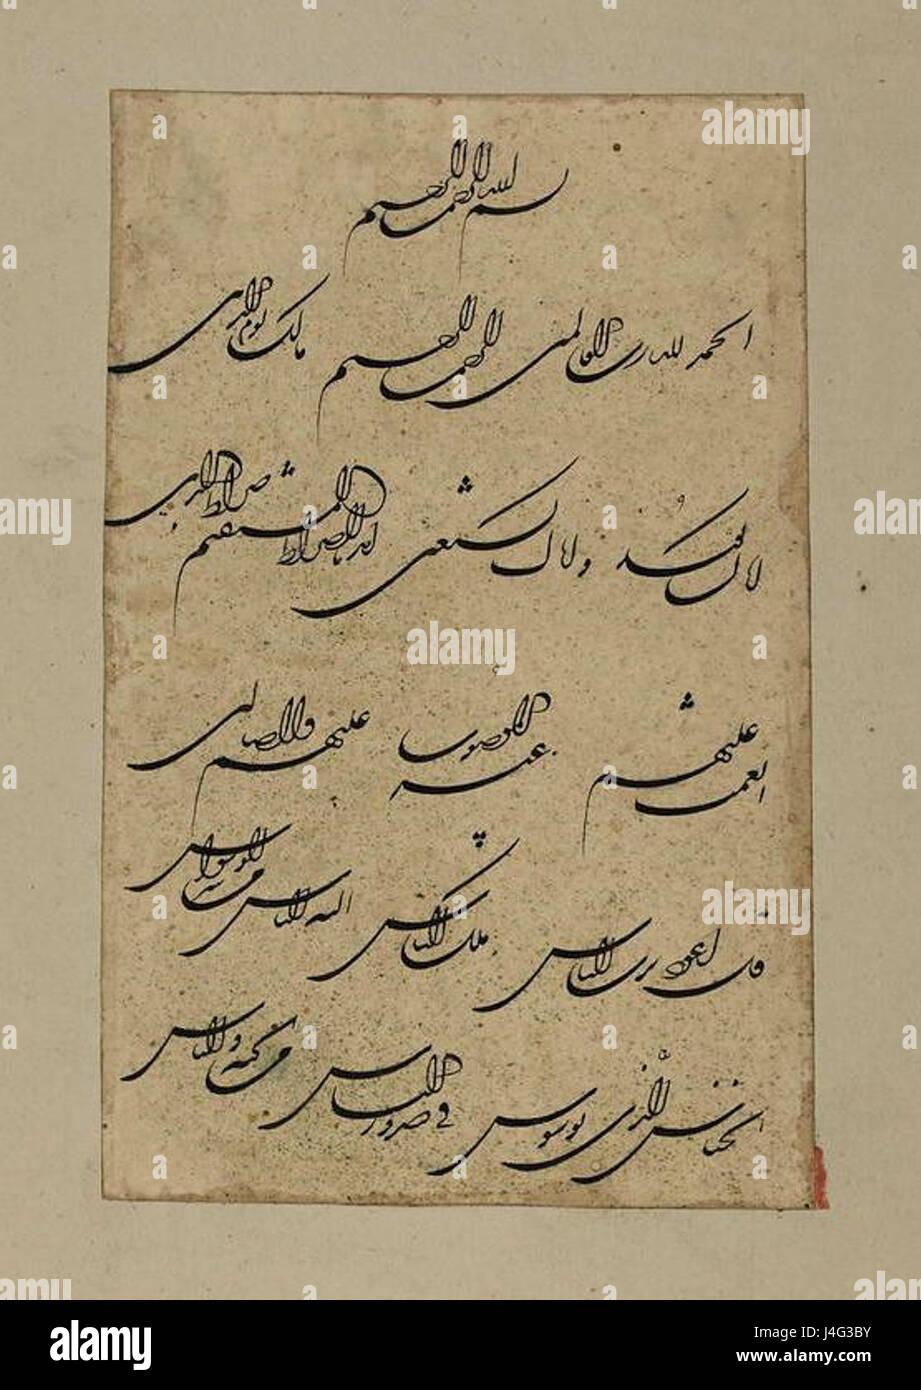 بسم الله الرحمن الرحيم
الحمد لله رب العالمين الرحمن الرحيم مالك يوم الدين
اياك نعبد واياك نستعين اهدنا الصراط المستقيم صراط الذين
انعمت عليهم غير المغضوب عليهم ولا الضالين
قل اعوذ برب الناس ملك الناس اله الناس من شر الوسواس
الخناس الذي يوسوس في صدور الناس من الجنة والناس
alamy
alamy stock photo
J4G3BY
www.alamy.com